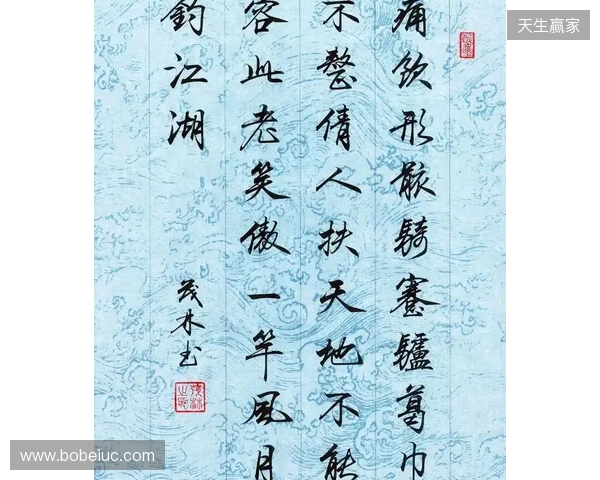 天生赢家
痛飲形骸騎蹇驢葛巾
不整倩人扶天地不能
容此老笑傲一竿風月
釣江湖
茂林书
www.bobeiuc.com